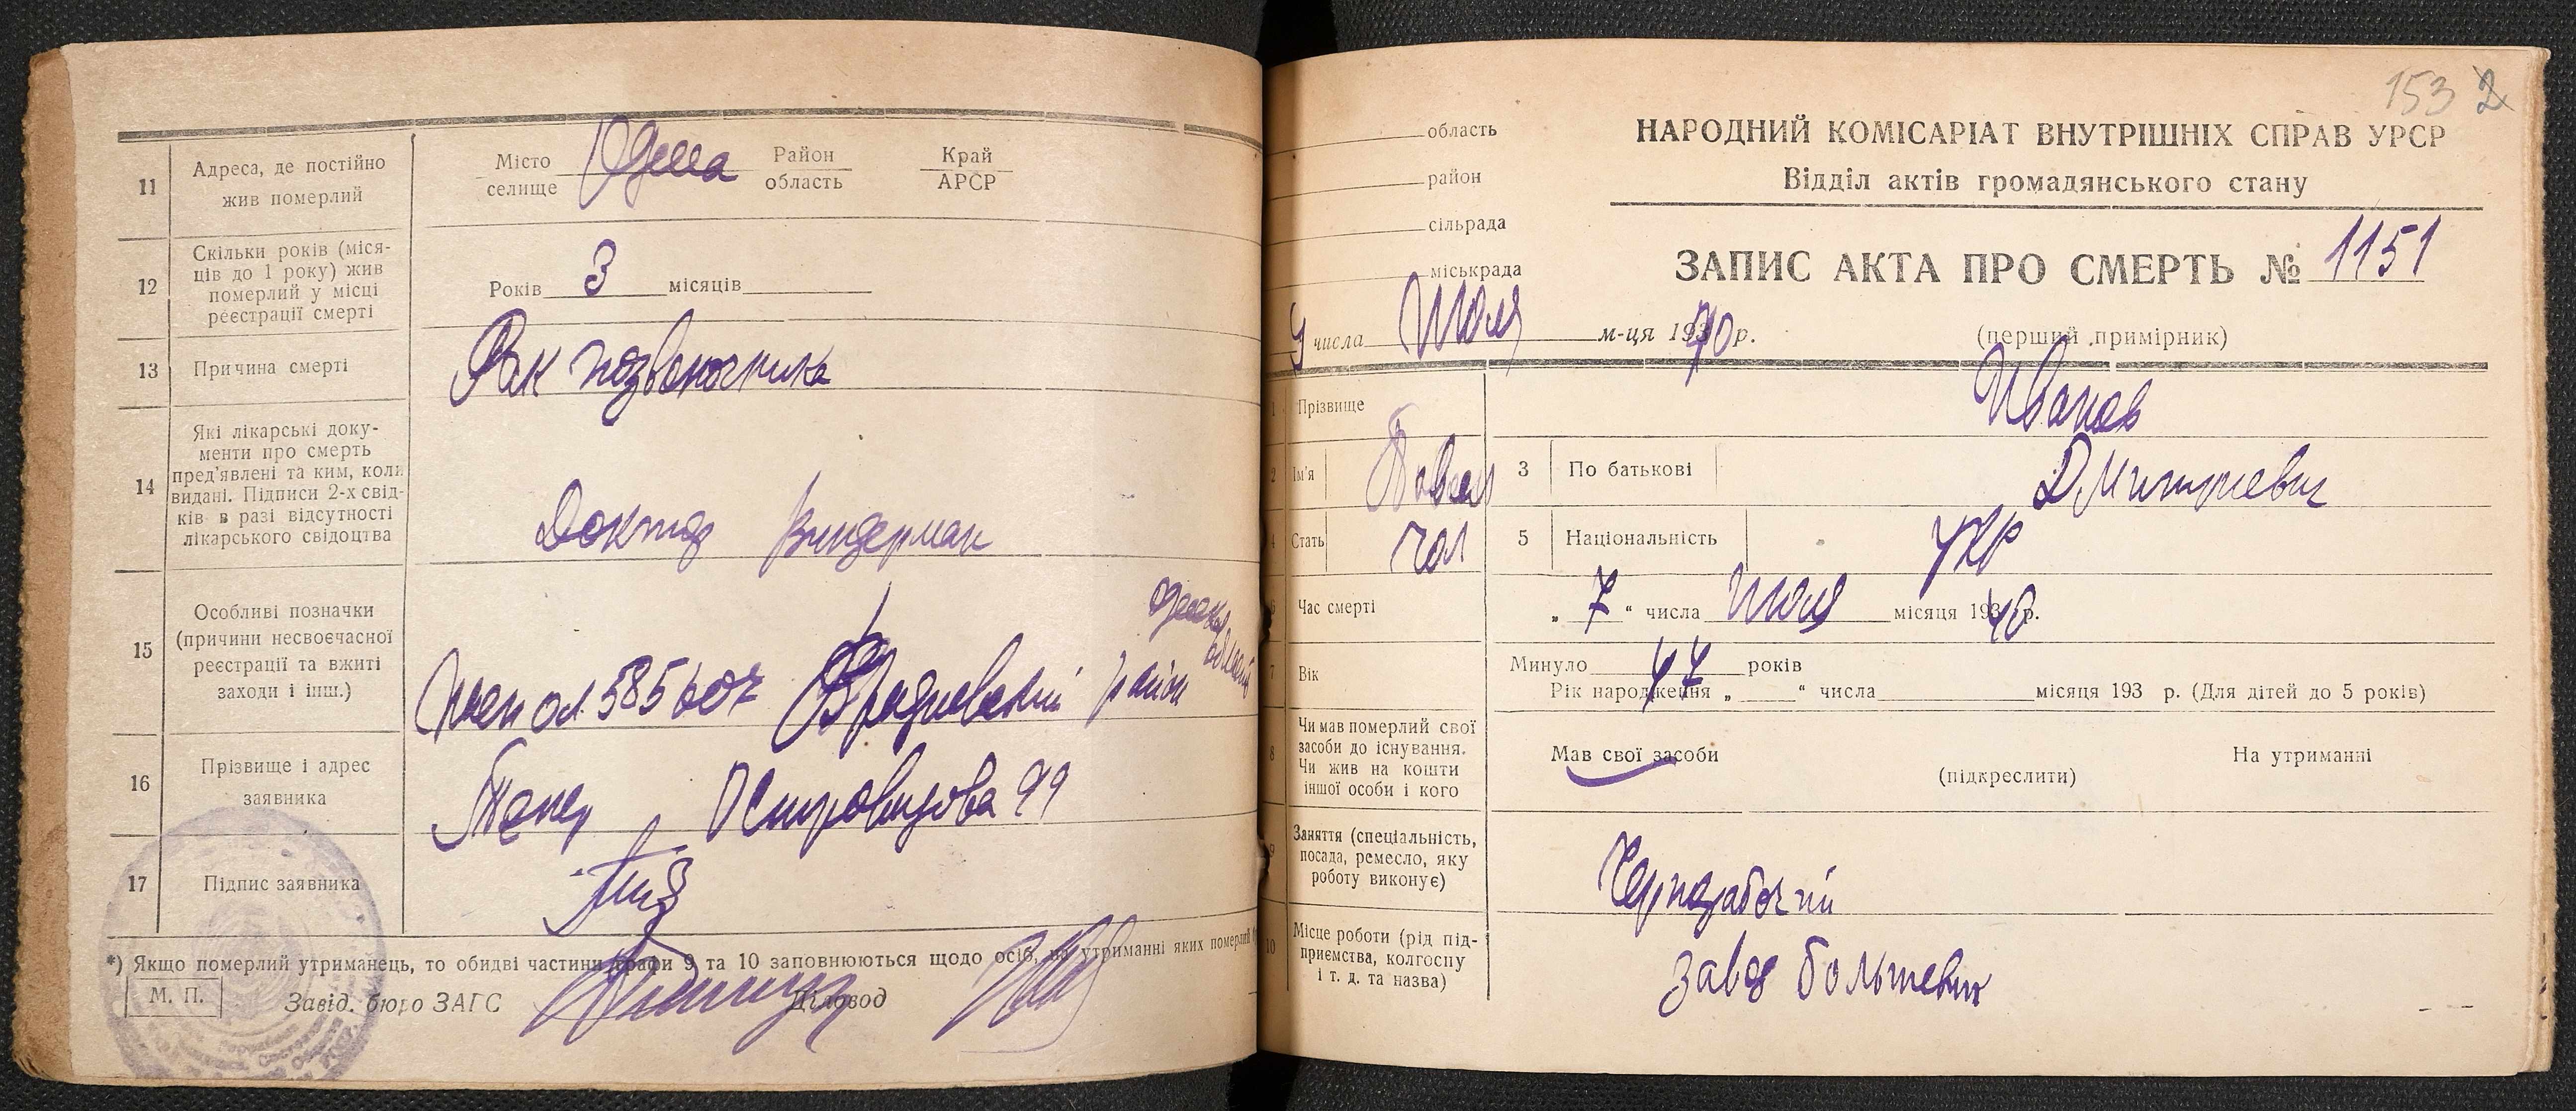 11
Адреса, де постійно
жив померлий
Місто
селище
Одесса
Район
область
Край
АРСР
12
Скільки років (міся-
ців до 1 року) жив
померлий у місці
реєстрації смерті
Років 3 місяців
13
Причина смерті
Рак позвоночника
14
Які лікарські доку-
менти про смерть
пред'явлені та ким, коли
видані. Підписи 2-х свід-
ків в разі відсутності
лікарського свідоцтва
Доктор
15
Особливі позначки
(причини несвоєчасної
реєстрації та вжиті
заходи і інш.)
585607
район
16
Прізвище і адрес
заявника
Островидова 99
17
Підпис заявника
*) Якщо померлий утриманець, то обидві частини графи 9 та 10 заповнюються щодо осіб, на утриманні яких померлий
М. П.
Завід. бюро ЗАГС
Діловод
153 2
область
район
сільрада
міськрада
НАРОДНИЙ КОМІСАРІАТ ВНУТРІШНІХ СПРАВ УРСР
Відділ актів громадянського стану
ЗАПИС АКТА ПРО СМЕРТЬ № 1151
9 числа Июля м-ця 1940 р.
(перший примірник)
1
Прізвище
Иванов
2
Ім'я
Павел
3
По батькові
Дмитриевич
4
Стать
чол
5
Національність
укр
6
Час смерті
„ 7 “ числа Июля місяця 1940 р.
7
Вік
Минуло 47 років
Рік народження „ “ числа місяця 193 р. (Для дітей до 5 років)
8
Чи мав померлий свої
засоби до існування.
Чи жив на кошти
іншої особи і кого
Мав свої засоби
(підкреслити)
На утриманні
9
Заняття (спеціальність,
посада, ремесло, яку
роботу виконує)
Чернорабочий
10
Місце роботи (рід під-
приємства, колгоспу
і т. д. та назва)
завод большевик